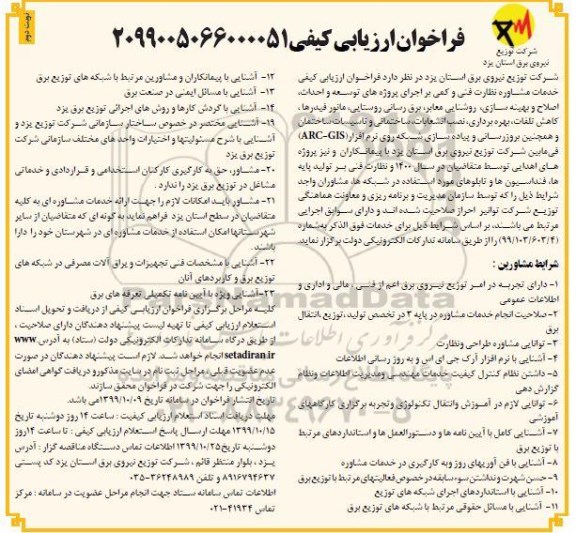 نوبت دوم
فراخوان ارزیابی کیفی ۲۰۹۹۰۰۵۰۶۶۰۰۰۰۵۱
شرکت توزیع
نیروی برق استان یزد
شرکت توزیع نیروی برق استان یزد در نظر دارد فراخوان ارزیابی کیفی
خدمات مشاوره نظارت فنی و کمی بر اجرای پروژه های توسعه و احداث،
اصلاح و بهینه سازی، روشنایی معابر، برق رسانی روستایی، مانور فیدرها،
کاهش تلفات، بهره برداری، نصب انشعابات، ساختمانی و تاسیسات ساختمان
و همچنین بروزرسانی و پیاده سازی شبکه روی نرم افزار (ARC-GIS)
فی مابین شرکت توزیع نیروی برق استان یزد با پیمانکاران و نیز پروژه
های اهدایی توسط متقاضیان در سال ۱۴۰۰ و نظارت فنی بر تولید پایه
ها، فنداسیون ها و تابلوهای مورد استفاده در شبکه ها، مشاوران واجد
شرایط ذیل را که توسط سازمان مدیریت و برنامه ریزی و معاونت هماهنگی
توزیع شرکت توانیر احراز صلاحیت شده اند و دارای سوابق اجرایی
مرتبط می باشند، بر اساس شرایط ذیل برای خدمات فوق الذکر به شماره
(۹۹/۱۰۳/۶۰۳/۴) را از طریق سامانه تدارکات الکترونیکی دولت برگزار نماید.
شرایط مشاورین :
۱- دارای تجربه در امر توزیع نیروی برق اعم از فنی، مالی و اداری و
اطلاعات عمومی
۲- صلاحیت انجام خدمات مشاوره در پایه ۳ در تخصص تولید، توزیع، انتقال
برق
۳- توانایی مشاوره طراحی و نظارت
۴- آشنایی با نرم افزار آرک جی ای اس و به روز رسانی اطلاعات
۵- داشتن نظام کنترل کیفیت خدمات مهندسی و مدیریت اطلاعات و نظام
گزارش دهی
۶- توانایی لازم در آموزش و انتقال تکنولوژی و تجربه برگزاری کارگاههای
آموزشی
۷- آشنایی کامل با آیین نامه ها و دستورالعمل ها و استانداردهای مرتبط
با توزیع برق
۸- آشنایی با فن آوریهای روز و به کارگیری در خدمات مشاوره
۹- حسن شهرت و نداشتن سوء سابقه در خصوص فعالیتهای مرتبط با توزیع برق
۱۰- آشنایی با استانداردهای اجرای شبکه های توزیع
۱۱- آشنایی با مسائل حقوقی مرتبط با شبکه های توزیع برق
۱۲- آشنایی با پیمانکاران و مشاورین مرتبط با شبکه های توزیع برق
۱۳- آشنایی با مسائل ایمنی در صنعت برق
۱۴- آشنایی با گردش کارها و روش های اجرائی توزیع برق یزد
۱۹- آشنایی مختصر در خصوص ساختار سازمانی شرکت توزیع یزد و
آشنایی با شرح مسئولیتها و اختیارات واحد های مختلف سازمانی شرکت
توزیع برق یزد
۲۰- مشاور، حق به کارگیری کارکنان استخدامی و قراردادی و خدماتی
مشاغل در توزیع برق یزد را ندارد.
۲۱- مشاور باید امکانات لازم را جهت ارائه خدمات مشاوره ای به کلیه
متقاضیان در سطح استان یزد فراهم نماید به گونه ای که متقاضیان از سایر
شهرستانها امکان استفاده از خدمات مشاوره ای در شهرستان خود را دارا
باشند.
۲۲- آشنایی با مشخصات فنی تجهیزات و یراق آلات مصرفی در شبکه های
توزیع برق و کاربردهای آنان
۲۳- آشنایی ویژه با آیین نامه تکمیلی تعرفه های برق
کلیه مراحل برگزاری فراخوان ارزیابی کیفی از دریافت و تحویل اسناد
استعلام ارزیابی کیفی تا تهیه لیست پیشنهاد دهندگان دارای صلاحیت،
از طریق درگاه سامانه تدارکات الکترونیکی دولت (ستاد) به آدرس www.
setadiran.ir انجام خواهد شد. لازم است پیشنهاد دهندگان در صورت
عدم عضویت قبلی، مراحل ثبت نام در سایت مذکور و دریافت گواهی امضای
الکترونیکی را جهت شرکت در فراخوان محقق سازند.
تاریخ انتشار فراخوان در سامانه تاریخ ۱۳۹۹/۱۰/۰۹ می باشد.
مهلت دریافت اسناد استعلام ارزیابی کیفی : ساعت ۱۴ روز دوشنبه تاریخ
۱۳۹۹/۱۰/۱۵ مهلت ارسال پاسخ استعلام ارزیابی کیفی : تا ساعت ۱۴ روز
دوشنبه تاریخ ۱۳۹۹/۱۰/۲۵ اطلاعات تماس دستگاه مناقصه گزار : آدرس
یزد، بلوار منتظر قائم، شرکت توزیع نیروی برق استان یزد کد پستی
۸۹۱۶۷۹۴۶۳۷ و تلفن ۳۶۲۴۸۹۸۹-۰۳۵
اطلاعات تماس سامانه ستاد جهت انجام مراحل عضویت در سامانه : مرکز
تماس ۴۱۹۳۴-۰۲۱